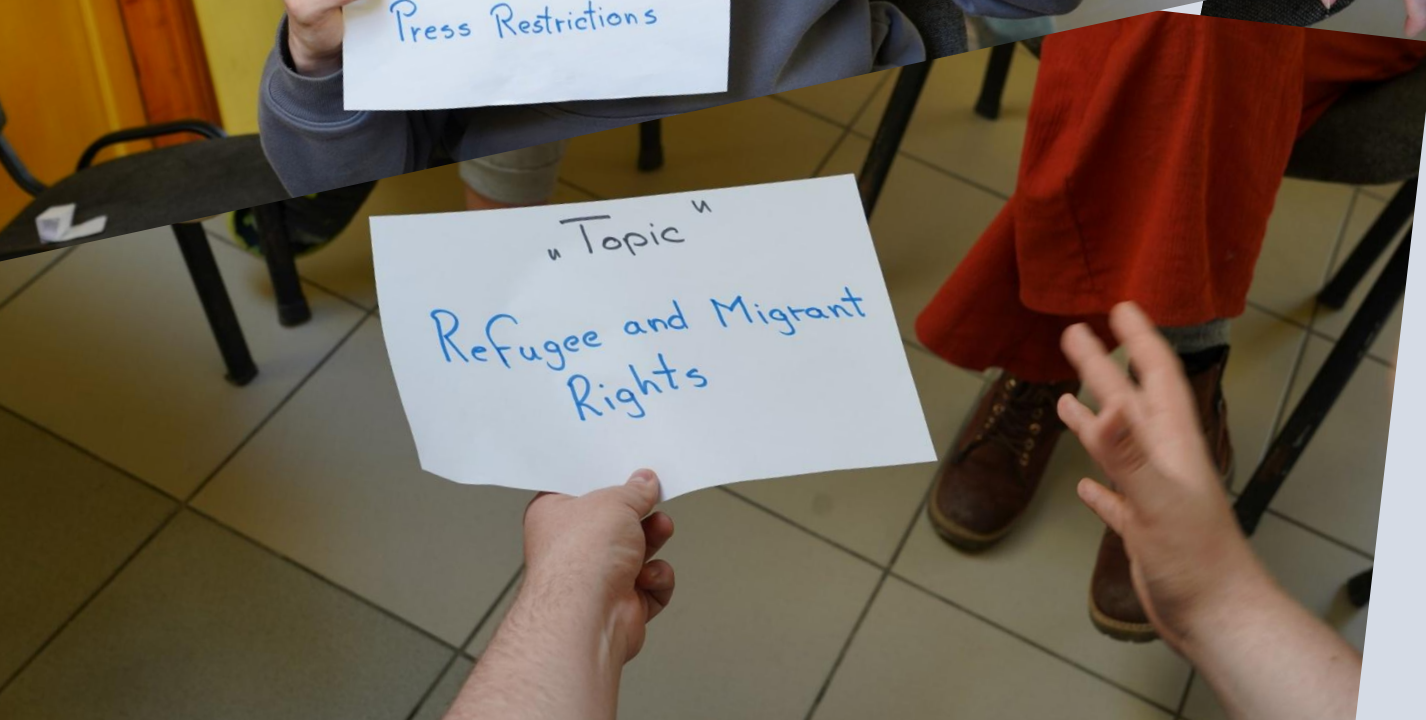 Press Restrictions
„Topic"
Refugee and Migrant
Rights